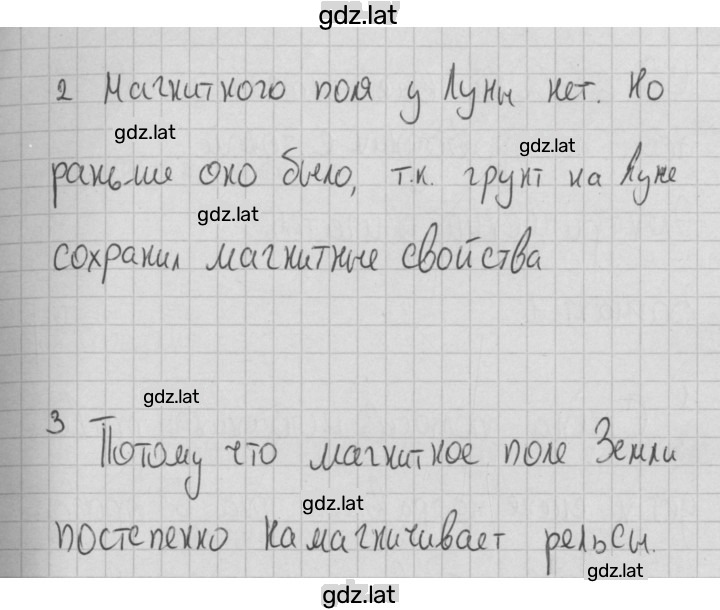 gdz.lat
2 Магнитного поля у Луны нет. Но
gdz.lat
gdz.lat
раньше оно было, т.к. грунт на Луне
gdz.lat
сохранил магнитные свойства
gdz.lat
3 Потому что магнитное поле Земли
gdz.lat
постепенно намагничивает рельсы.
gdz.lat
gdz.lat